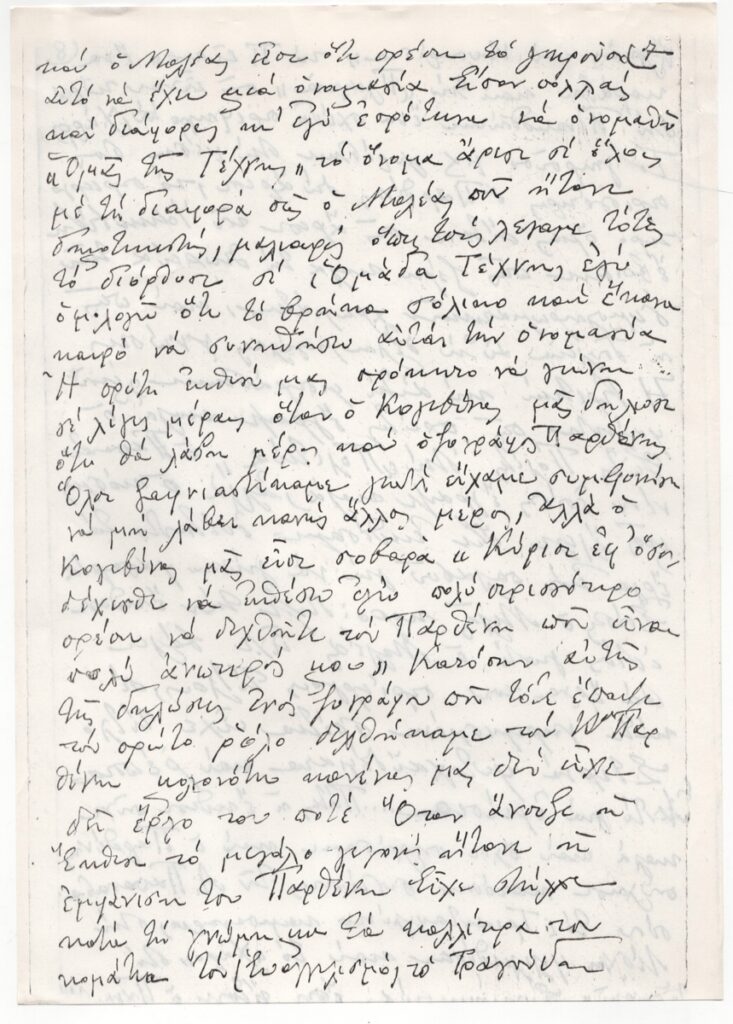 καί ὁ Μαλέας εἶπε ὅτι πρέπει τό γκρούπ 7
αὐτό νά ἔχει μιά ὀνομασία εἶπαν πολλάς
καί διάφορες κι' ἐγώ ἐπρότεινα νά ὀνομαθῆ
"Ομάς τῆς Τέχνης" τό ὄνομα ἄρεσε σέ ὅλους
μέ τή διαφορά πώς ὁ Μαλέας πού ἤτανε
δημοτικιστής, μαλιαρός ὅπως τούς λέγαμε τότες
τό διόρθωσε σέ "Ομάδα Τέχνης ἐγώ
ὁμολογῶ ὅτι τό βρῆκα πόλικο καί ἔκανα
καιρό νά συνηθήσω αὐτάν τήν ὀνομασία
Ἡ πρώτη ἔκθεσί μας πρόκειτο νά γίνει
σέ λίγες μέρες ὅταν ὁ Κογεβίνας μᾶς δήλωσε
ὅτι θά λάβη μέρος καί ὁ ζωγράφος Παρθένης
Ὅλοι ξαφνιαστίκαμε γιατί εἴχαμε συμφονήσει
νά μή λάβει κανείς ἄλλος μέρος, ἀλλά ὁ
Κογεβίνας μᾶς εἶπε σοβαρά "Κύριοι ἐφ' ὅσον
δέχεσθε νά ἐκθέσω ἐγώ πολύ περισσότερο
πρέπει νά δεχθῆτε τόν Παρθένη πού εἶναι
πολύ ἀνώτερός μου" Κατόπιν αὐτῆς
τῆς δηλώσης ἑνός ζωγράφου πού τότε ἔπαιζε
τόν πρῶτο ρόλο δεχθήκαμε τόν Κ Παρ
θένη μολονότι κανένας μας δέν εἶχε
δεῖ ἔργο του ποτέ Ὅταν ἄνοιξε ἡ
Ἔκθεσι τό μεγάλο γεγονός ἤτανε ἡ
ἐμφάνιση του Παρθένη Εἶχε στείλει
κατά τή γνώμη μου τά καλλίτερα του
κομάτια Τόν Εὐαγγελισμό, τό Τραγούδι